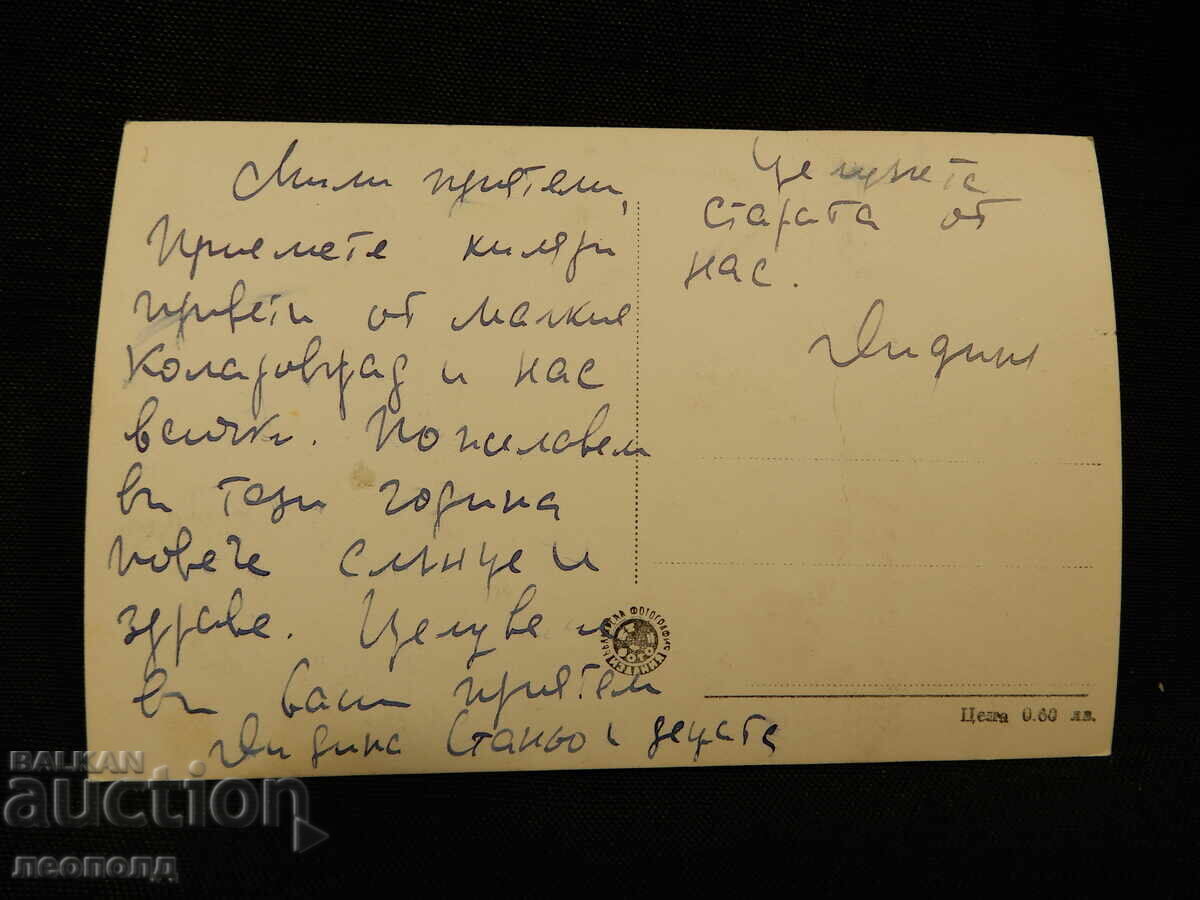 Мили приятели,
Приемете хиляди
привети от малкия
Коларовград и нас
всички. Пожелавам
ви тази година
повече слънце и
здраве. Целуваме
ви ваши приятели
Дидина Станьо и децата
Целунете
старата от
нас.
Дидина
БЪЛГАРСКА ФОТОГРАФИЯ
Цена 0.60 лв.
BALKAN
auction
леополд